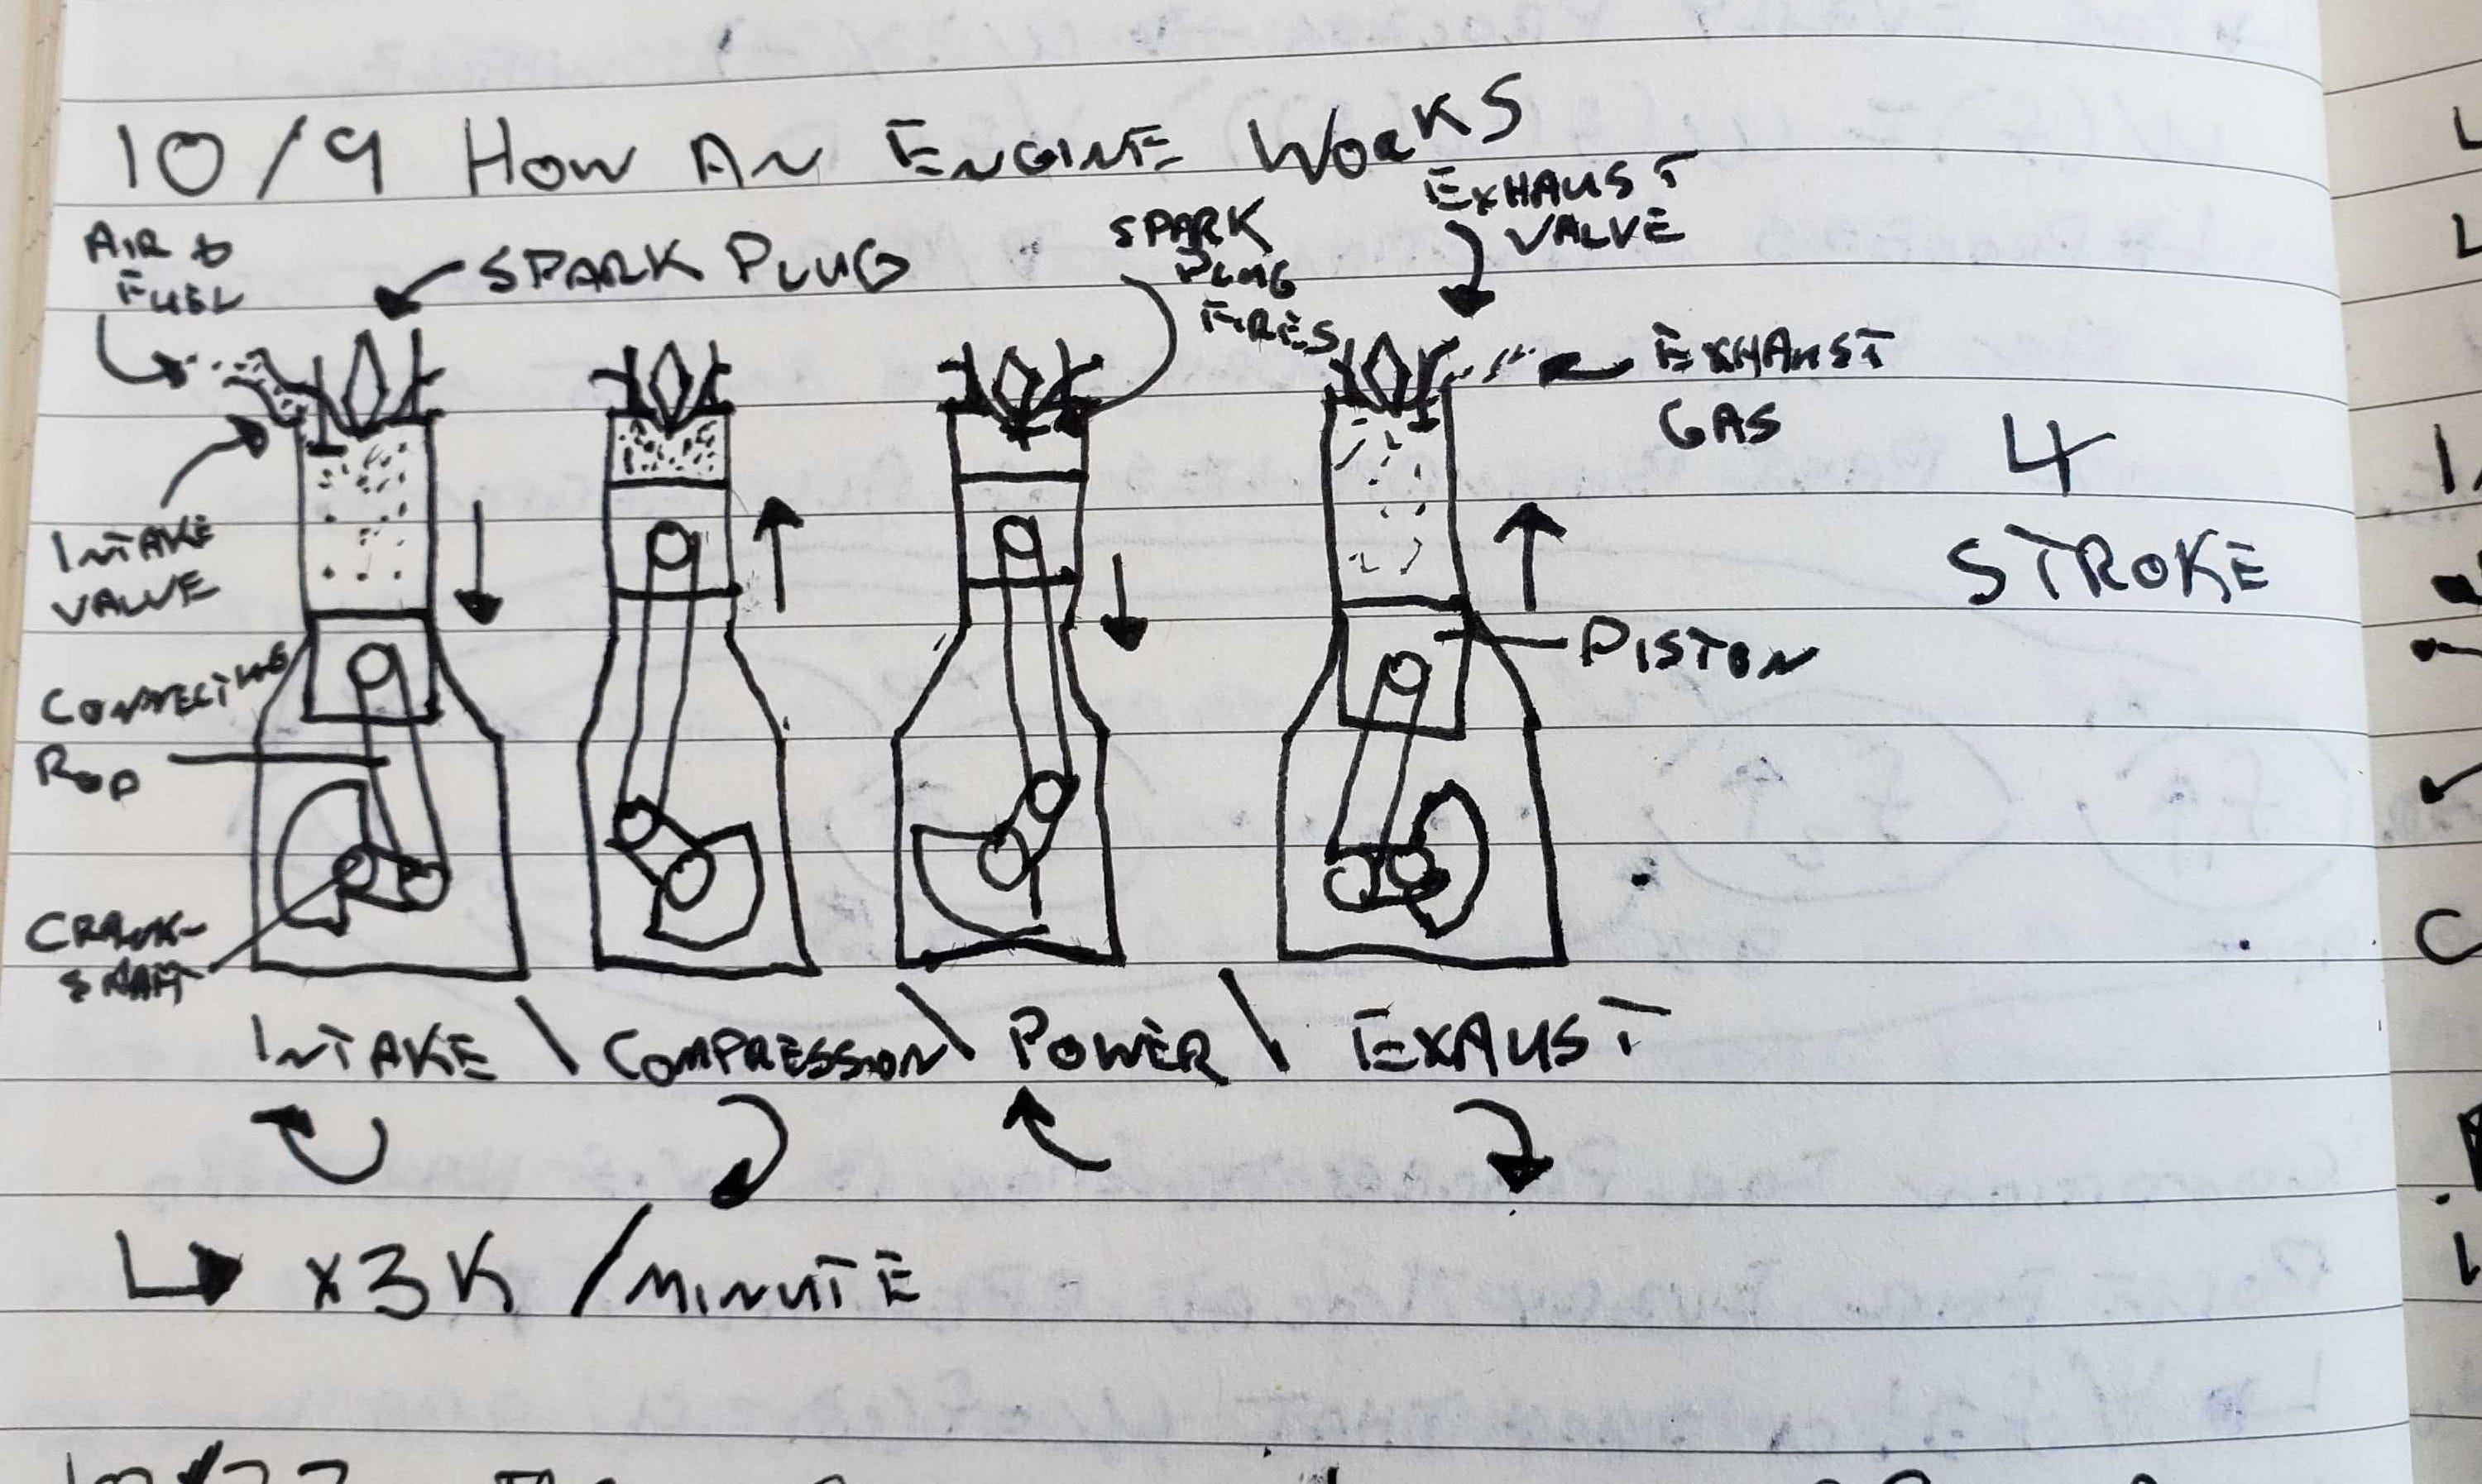 10/9 How An Engine Works
Air &
Fuel
Spark Plug
Spark
Plug
Fires
Exhaust
Valve
Exhaust
Gas
4
Stroke
Intake
Valve
Connecting
Rod
Piston
Crank-
shaft
Intake \ Compression \ Power \ Exaust
↳ x3K / minute